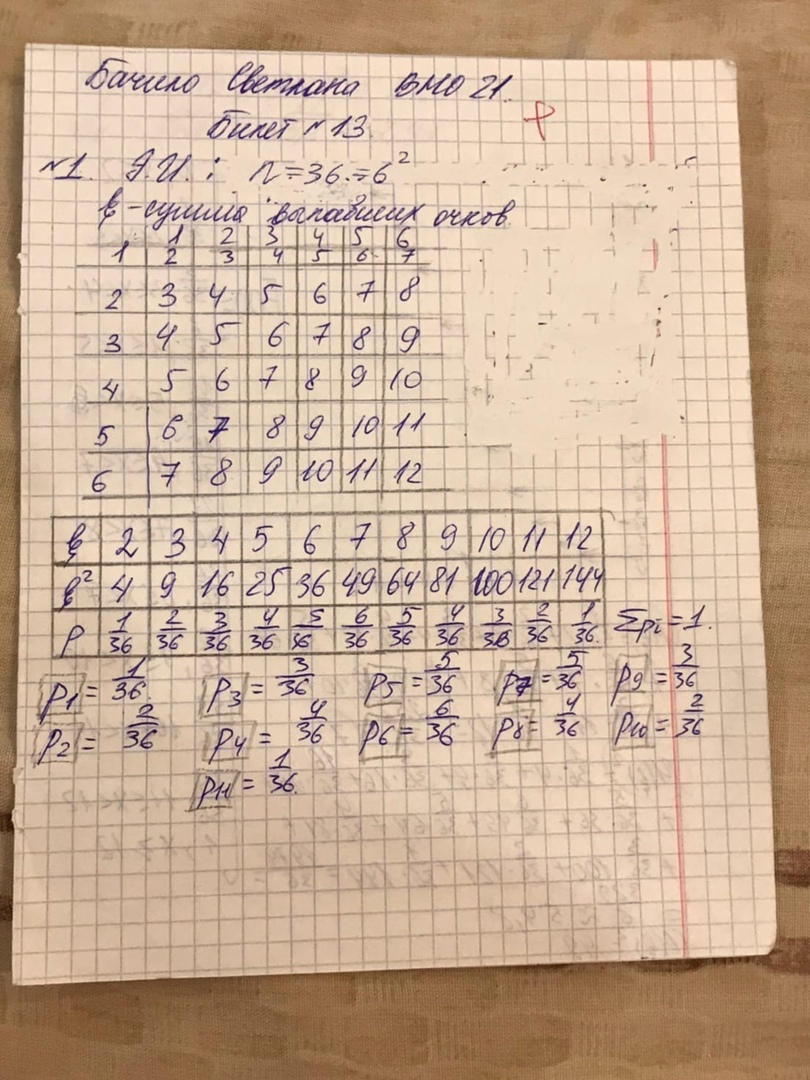 Бачило Светлана ВМО 21.
Билет №13.
№1. Э.И.: n=36=6²
ξ - сумма выпавших очков
1 2 3 4 5 6
1 2 3 4 5 6 7
2 3 4 5 6 7 8
3 4 5 6 7 8 9
4 5 6 7 8 9 10
5 6 7 8 9 10 11
6 7 8 9 10 11 12
ξ 2 3 4 5 6 7 8 9 10 11 12
ξ² 4 9 16 25 36 49 64 81 100 121 144
P 1/36 2/36 3/36 4/36 5/36 6/36 5/36 4/36 3/36 2/36 1/36. Σpi=1.
p1 = 1/36. p3 = 3/36 p5 = 5/36 p7 = 5/36 p9 = 3/36
p2 = 2/36 p4 = 4/36 p6 = 6/36 p8 = 4/36 p10 = 2/36
p11 = 1/36.